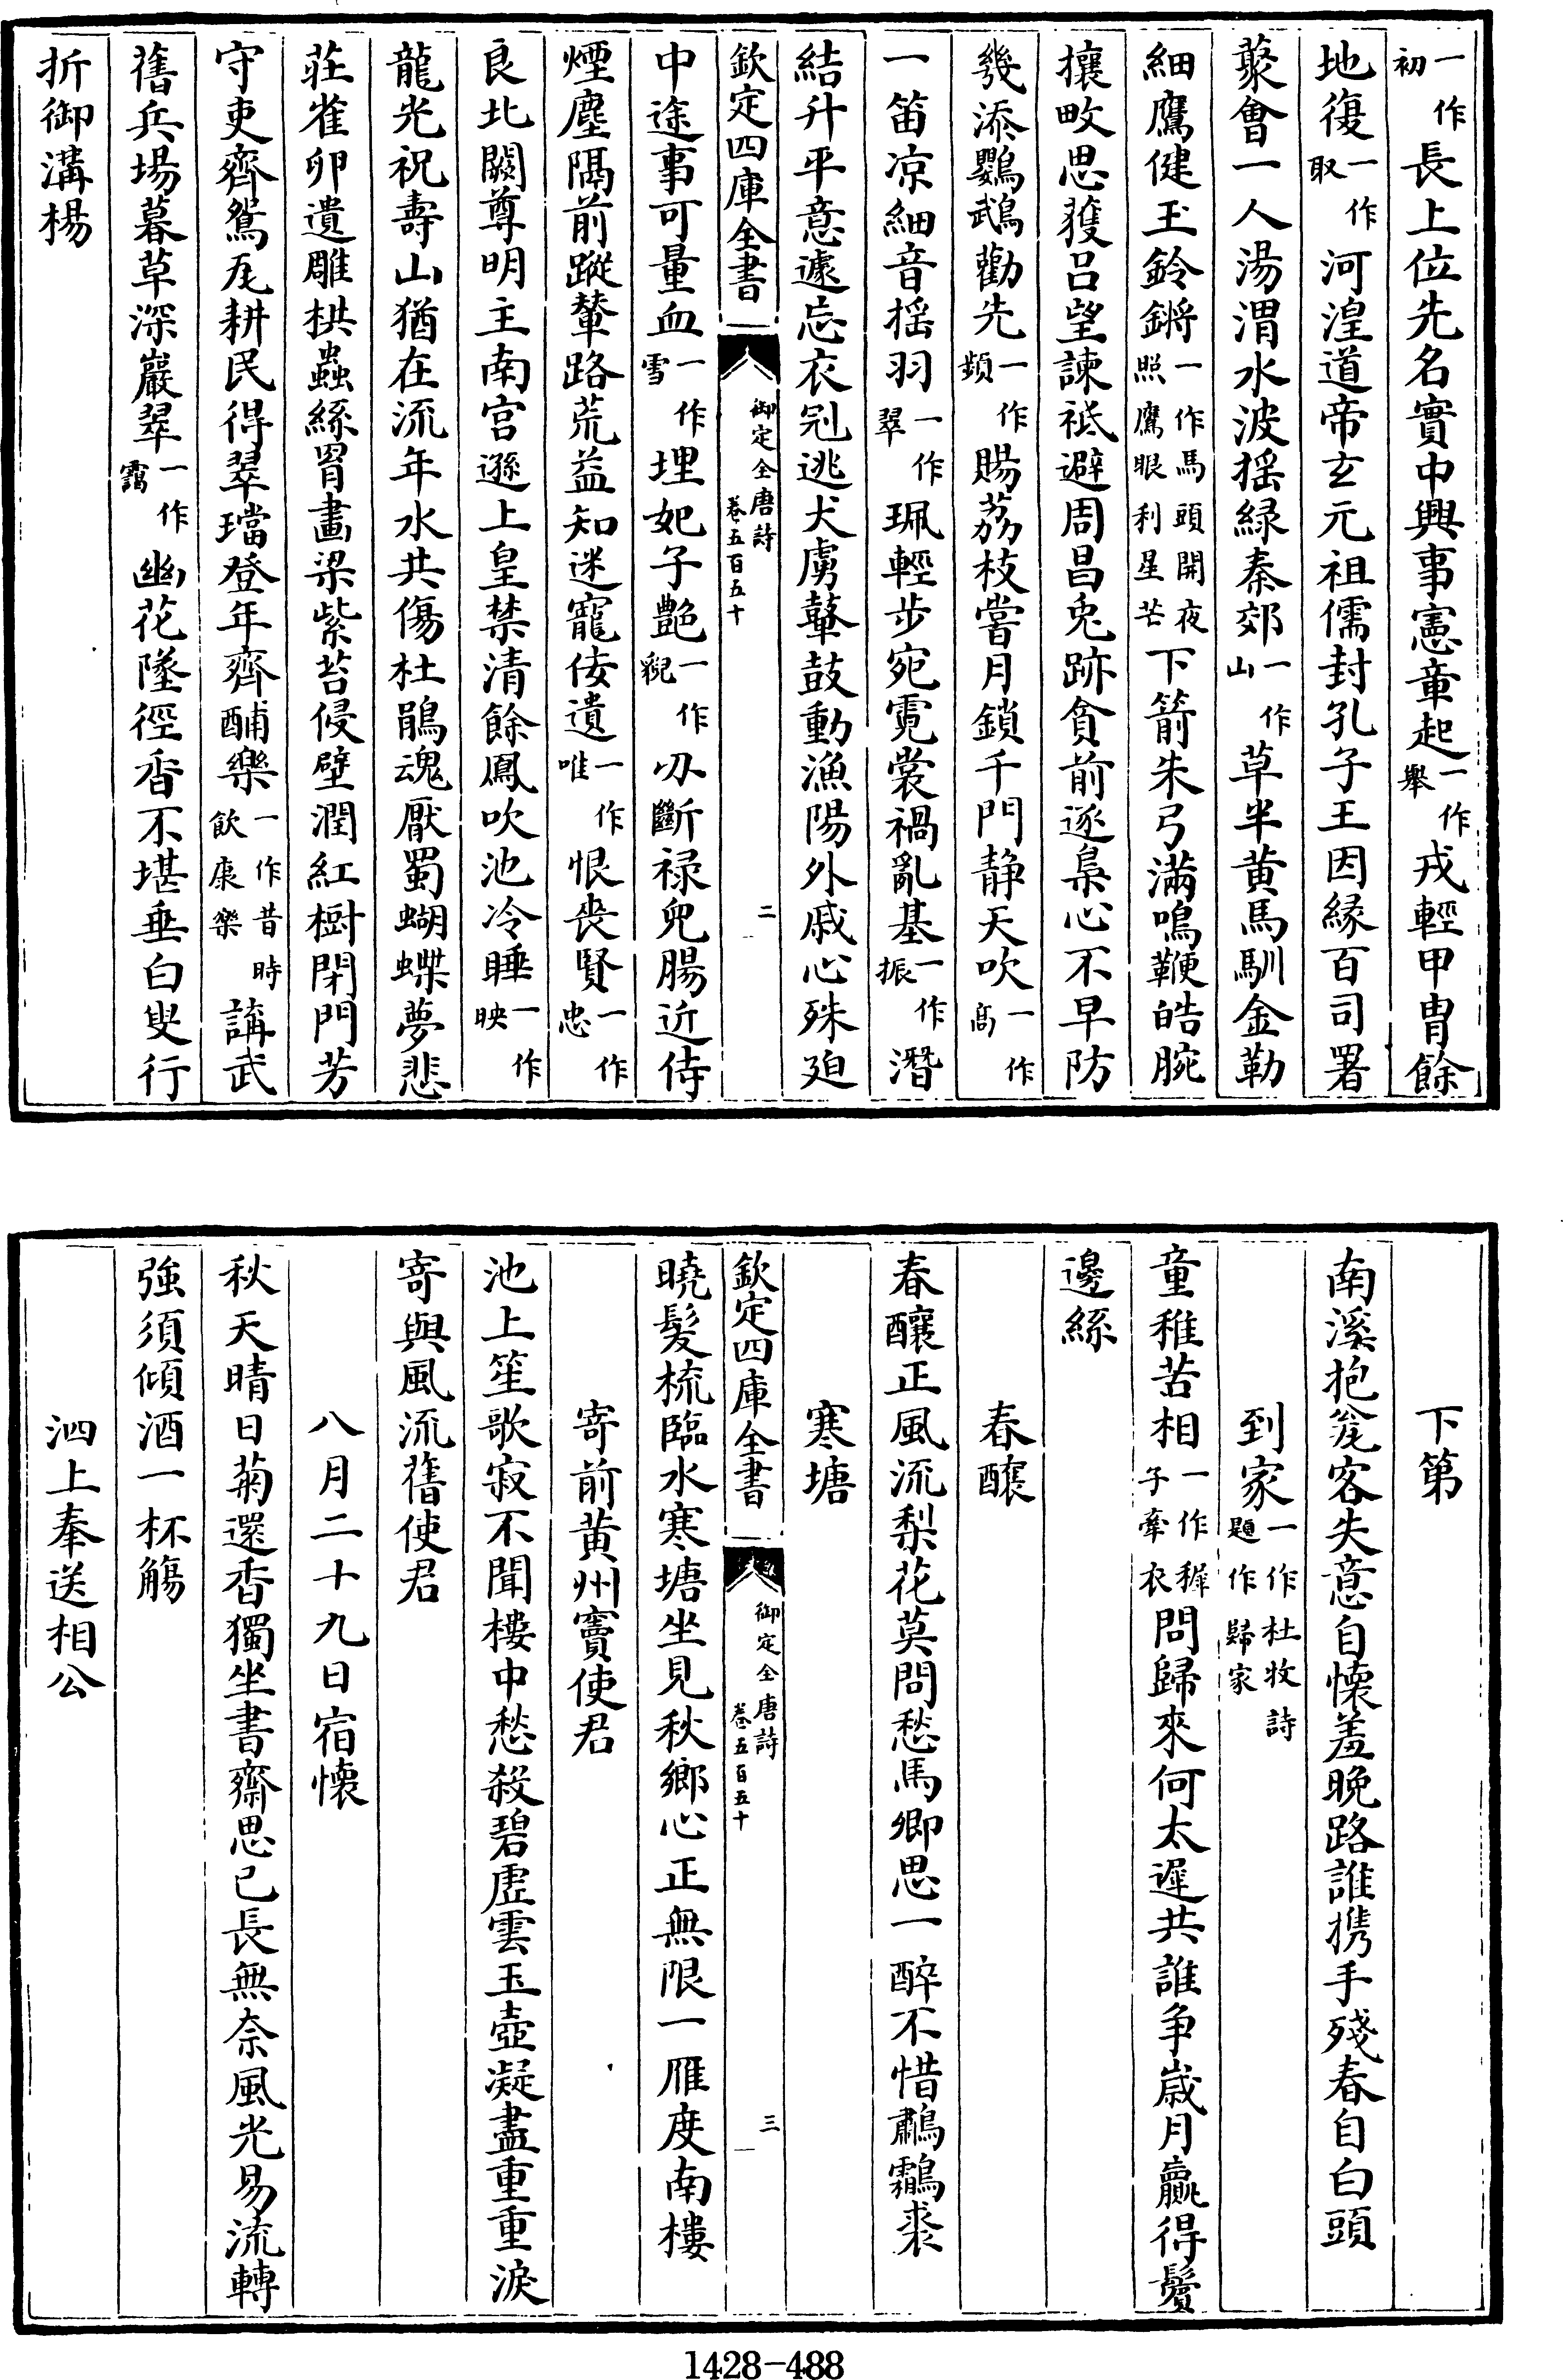 一作初長上位先名實中興事憲章起一作舉戎輕甲冑餘
地復一作取河湟道帝玄元祖儒封孔子王因緣百司署
藂會一人湯渭水波揺緑秦郊一作山草半黄馬馴金勒
細鷹健玉鈴鏘一作馬頭開夜照鷹眼利星芒下箭朱弓滿鳴鞭皓腕
攘畋思獲吕望諫祗避周昌兎跡貪前逐梟心不早防
㡬添鸚鵡勸先一作頻賜荔枝嘗月鎖千門静天吹一作高
一笛凉細音揺羽一作翠珮輕步宛霓裳禍亂基一作振潛
結升平意遽忘衣冠逃犬虜鼙鼓動漁陽外戚心殊廹
欽定四庫全書 御定全唐詩 卷五百五十 二
中途事可量血一作雪埋妃子艶一作貎刅斷禄兒腸近侍
煙塵隔前蹤輦路荒益知迷寵佞遺一作唯恨喪賢一作忠
良北闕尊明主南宫遜上皇禁清餘鳳吹池冷睡一作映
龍光祝壽山猶在流年水共傷杜鵑魂厭蜀蝴蝶夢悲
莊雀卵遺雕栱蟲絲罥畫梁紫苔侵壁潤紅樹閉門芳
守吏齊鴛瓦耕民得翠璫登年齊酺樂一作昔時飲康樂講武
舊兵場暮草深巖翠一作靄幽花墜徑香不堪垂白叟行
折御溝楊
下第
南溪抱瓮客失意自懷羞晚路誰携手殘春自白頭
到家一作杜牧詩題作歸家
童稚苦相一作穉子牽衣問歸來何太遲共誰争歲月贏得鬢
邊絲
春醸
春釀正風流梨花莫問愁馬卿思一醉不惜鷫鸘裘
寒塘
欽定四庫全書 御定全唐詩 卷五百五十 三
曉髮梳臨水寒塘坐見秋鄉心正無限一雁度南樓
寄前黄州竇使君
池上笙歌寂不聞樓中愁殺碧虚雲玉壺凝盡重重淚
寄與風流舊使君
八月二十九日宿懷
秋天晴日菊還香獨坐書齋思已長無奈風光易流轉
強須傾酒一杯觴
泗上奉送相公
1428-488